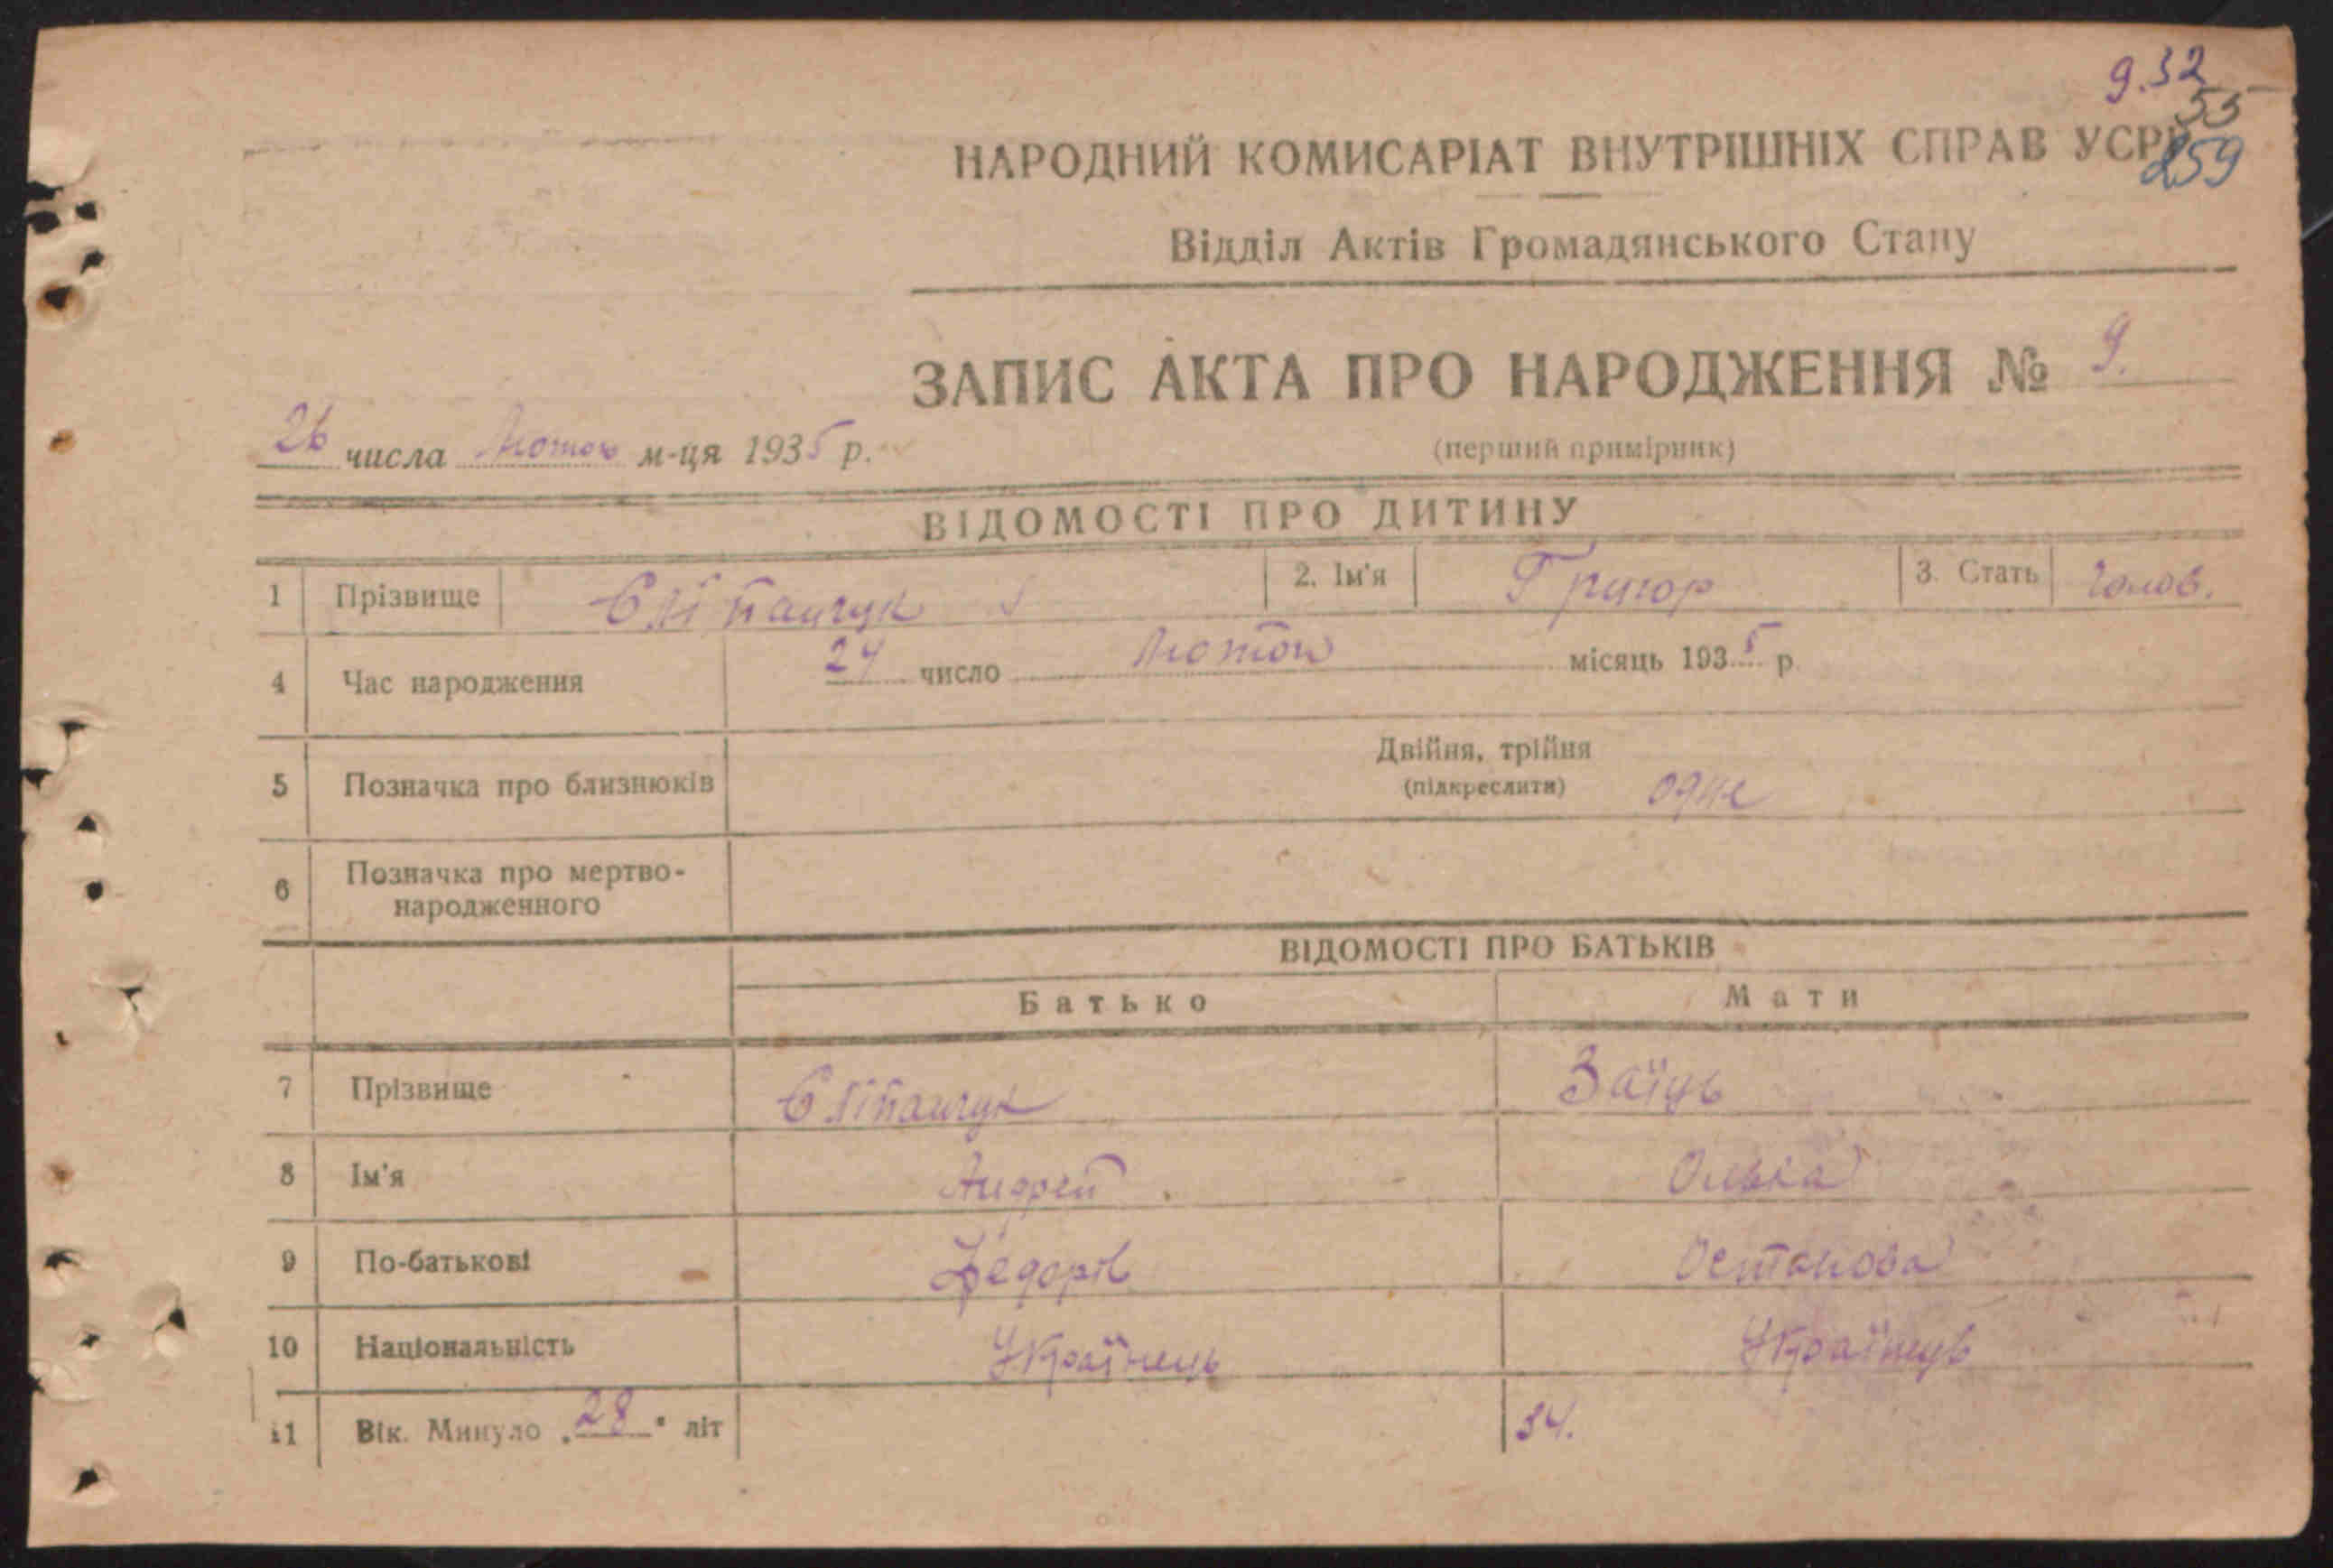 9.32
55
259
НАРОДНИЙ КОМИСАРІАТ ВНУТРІШНІХ СПРАВ УСРР
Відділ Актів Громадянського Стану
ЗАПИС АКТА ПРО НАРОДЖЕННЯ № 9.
26 числа Лютого м-ця 1935 р.
(перший примірник)
ВІДОМОСТІ ПРО ДИТИНУ
1 Прізвище Єліпашук 2. Ім'я Григор 3. Стать Голов.
4 Час народження 24 число Лютого місяць 1935 р.
5 Позначка про близнюків Двійня, трійня
(підкреслити) одне
6 Позначка про мертво-
народженного
ВІДОМОСТІ ПРО БАТЬКІВ
Батько Мати
7 Прізвище Заїць
8 Ім'я Андрей Олька
9 По-батькові Федорів Остапова
10 Національність Українець Українць
11 Вік. Минуло „28" літ 34.